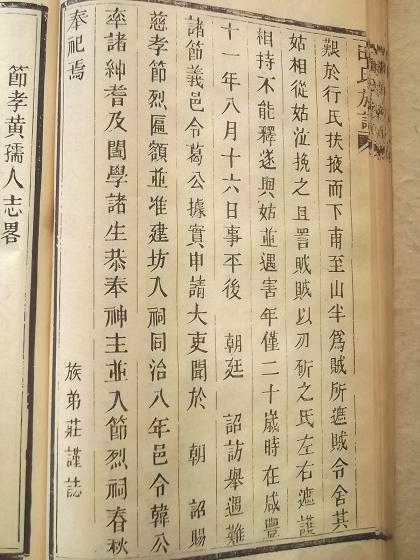 氏族譜
艱於行氏扶掖而下甫至山半為賊所遮賊令舍其
姑相從姑泣挽之且詈賊賊以刃斫之氏左右遮護
相持不能釋遂與姑並遇害年僅二十歲時在咸豐
十一年八月十六日事平後 朝廷 詔訪舉遇難
諸節義邑令葛公據實申請大吏聞於 朝 詔賜
慈孝節烈匾額並准建坊入祠同治八年邑令韓公
率諸紳耆及闔學諸生恭奉神主並入節烈祠春秋
奉祀焉 族弟莊謹誌
節孝黃孺人志畧